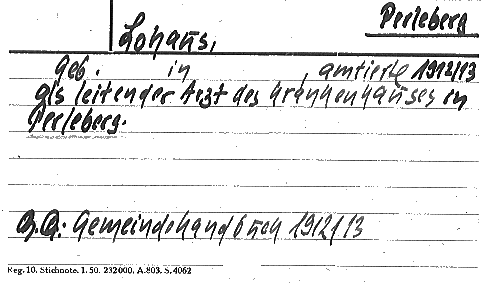 Perleberg
Lohaus,
geb. in , amtierte 1912/13
als leitender Arzt des Krankenhauses in
Perleberg.
Gemeindehandbuch 1912/13
Reg. 10. Stichnote. 1. 50. 232000. A.803. S.4062